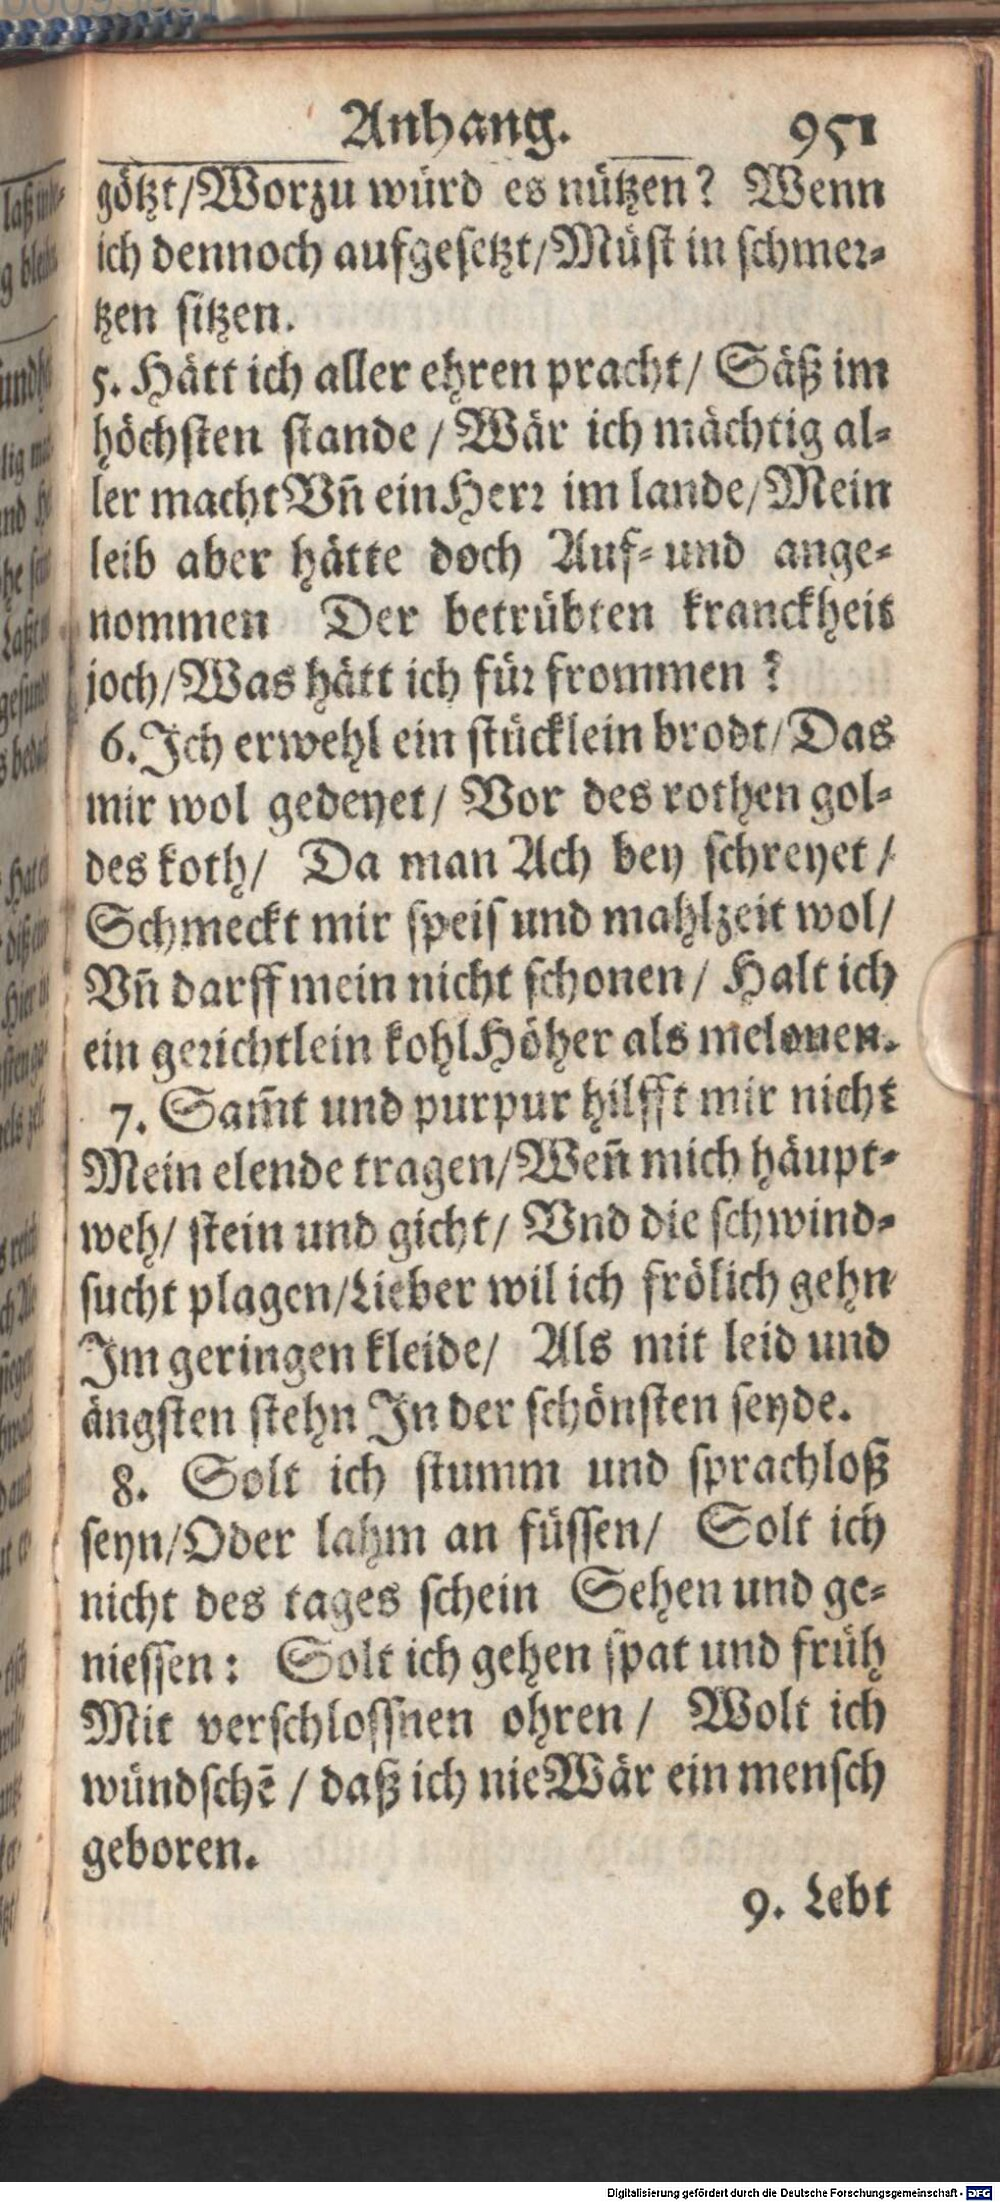 Anhang. 951
götzt/Worzu würd es nützen? Wenn
ich dennoch aufgesetzt/Müst in schmer-
tzen sitzen.
5. Hätt ich aller ehren pracht/ Säß im
höchsten stande / Wär ich mächtig al-
ler macht Vñ ein Herr im lande/Mein
leib aber hätte doch Auf- und ange-
nommen Der betrübten kranckheit
joch/Was hätt ich für frommen ?
6. Ich erwehl ein stücklein brodt/Das
mir wol gedeyet/ Vor des rothen gol-
des koth/ Da man Ach bey schreyet /
Schmeckt mir speis und mahlzeit wol/
Vñ darff mein nicht schonen/ Halt ich
ein gerichtlein kohl Höher als melonen.
7. Sam̃t und purpur hilfft mir nicht
Mein elende tragen/Weñ mich häupt-
weh/ stein und gicht/ Vnd die schwind-
sucht plagen/Lieber wil ich frölich gehn
Im geringen kleide/ Als mit leid und
ängsten stehn In der schönsten seyde.
8. Solt ich stumm und sprachloß
seyn/Oder lahm an füssen/ Solt ich
nicht des tages schein Sehen und ge-
niessen: Solt ich gehen spat und früh
Mit verschlossnen ohren / Wolt ich
wündschẽ / daß ich nie Wär ein mensch
geboren.
9. Lebt
Digitalisierung gefördert durch die Deutsche Forschungsgemeinschaft - DFG